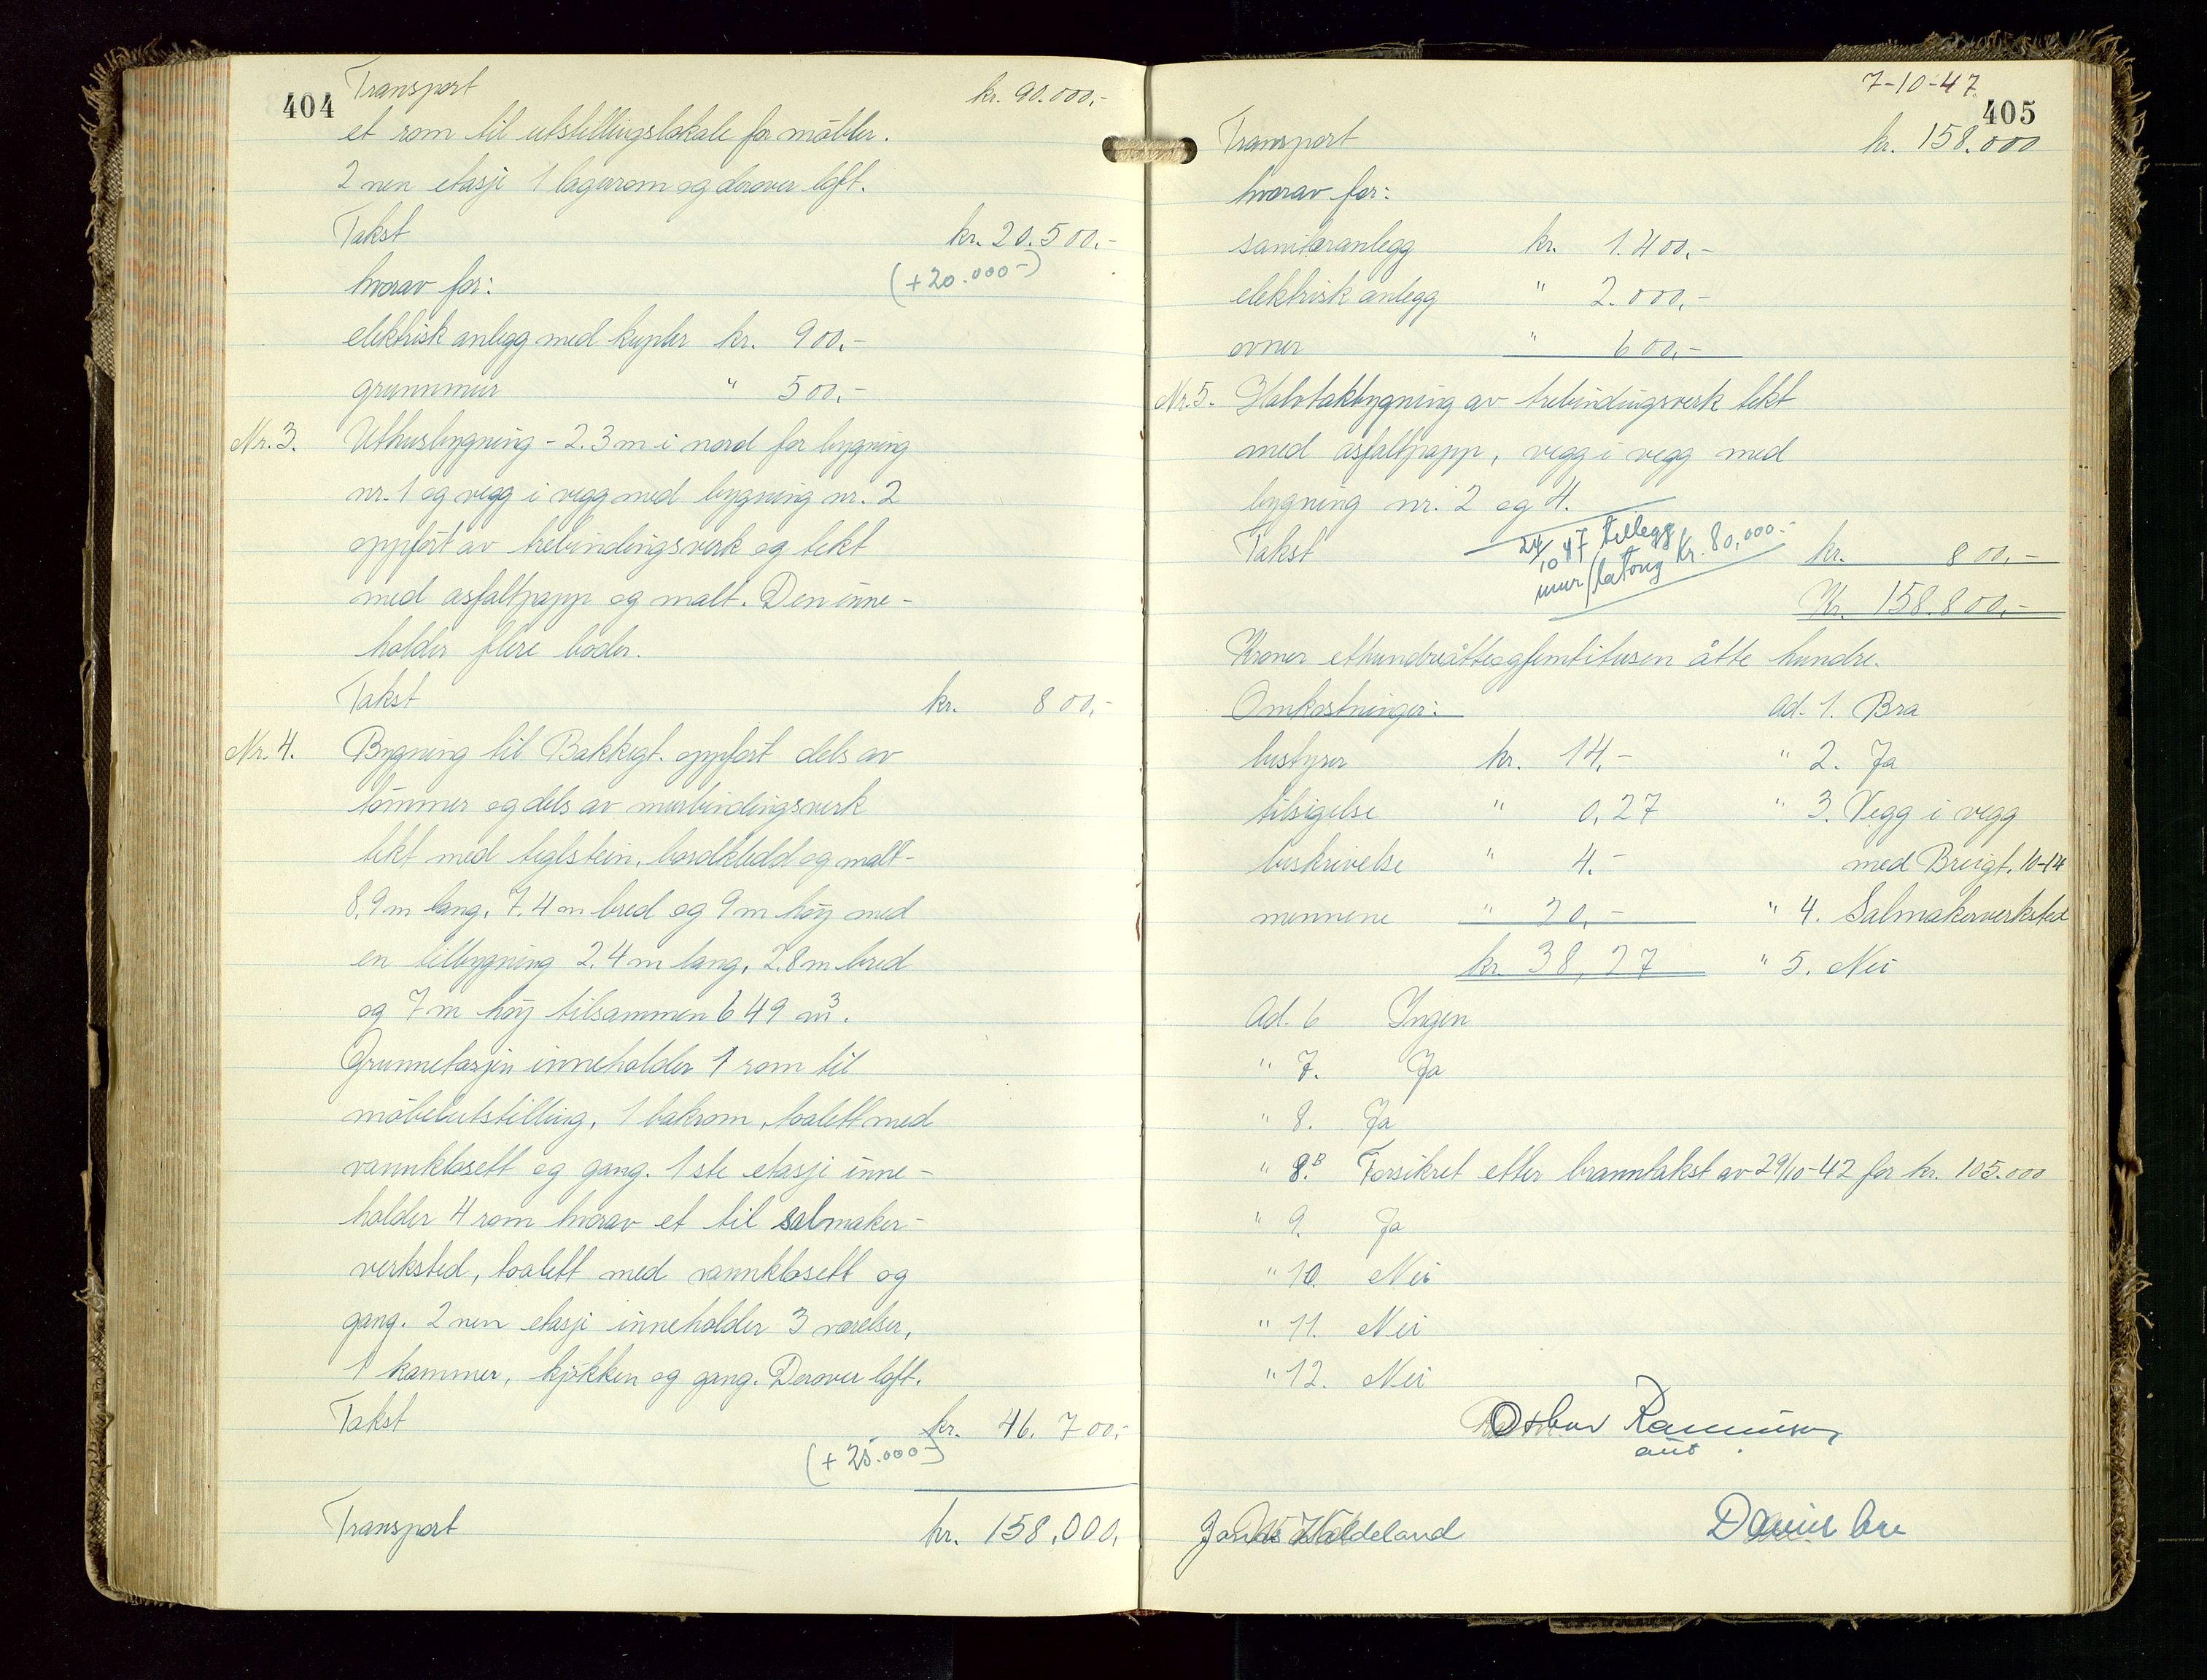 404
Transport kr. 90.000,-
et rom til utstillingslokale for møbler.
2 nen etasje 1 lagerrom og derover loft.
Takst kr. 20.500,-
(+20.000-)
hvorav for:
elektrisk anlegg med kupler kr. 900,-
grunnmur " 500,-
Nr. 3. Uthusbygning - 2.3 m i nord for bygning
nr. 1 og vegg i vegg med bygning nr. 2
oppført av trebindingsverk og tekt
med asfaltpapp og malt. Den inne-
holder flere boder.
Takst kr. 800,-
Nr. 4. Bygning til Bakkegt. oppført dels av
tømmer og dels av murbindingsverk
tekt med teglstein, bordkledd og malt-
8,9 m lang, 7.4 m bred og 9 m høy med
en tilbygning 2.4 m lang, 2.8 m bred
og 7 m høy tilsammen 649 m³.
Grunnetasjen inneholder 1 rom til
møbelutstilling, 1 bakrom, toalett med
vannklosett og gang. 1 ste etasje inne-
holder 4 rom hvorav et til salmaker-
verksted, toalett med vannklosett og
gang. 2 nen etasje inneholder 3 værelser,
1 kammer, kjøkken og gang. Derover loft.
Takst kr. 46.700,-
(+25.000-)
Transport kr. 158.000,
7-10-47
405
Transport kr. 158.000
hvorav for:
sanitæranlegg kr. 1.400,-
elektrisk anlegg " 2.000,-
ovner " 600,-
Nr. 5. Halvtakbygning av trebindingsverk tekt
med asfaltpapp, vegg i vegg med
bygning nr. 2 og 4.
24/10 47 tillegg
mur/ kr. 80,000.-
Takst kr. 800,-
Kr. 158.800,-
Kroner ethundreåtteogfemtitusen åtte hundre.
Omkostninger: ad. 1. Bra
bestyrer kr. 14,- " 2. Ja
tilsigelse " 0,27 " 3. Vegg i vegg
beskrivelse " 4.- med Breigt. 10-14
mennene " 20,- " 4. Salmakerverksted
kr. 38,27 " 5. Nei
Ad. 6 Ingen
" 7. Ja
" 8. Ja
" 8.B Forsikret etter branntakst av 29/10-42 for kr. 105.000
" 9. Ja
" 10. Nei
" 11. Nei
" 12. Nei
Rasmussen
Jonas Haldeland